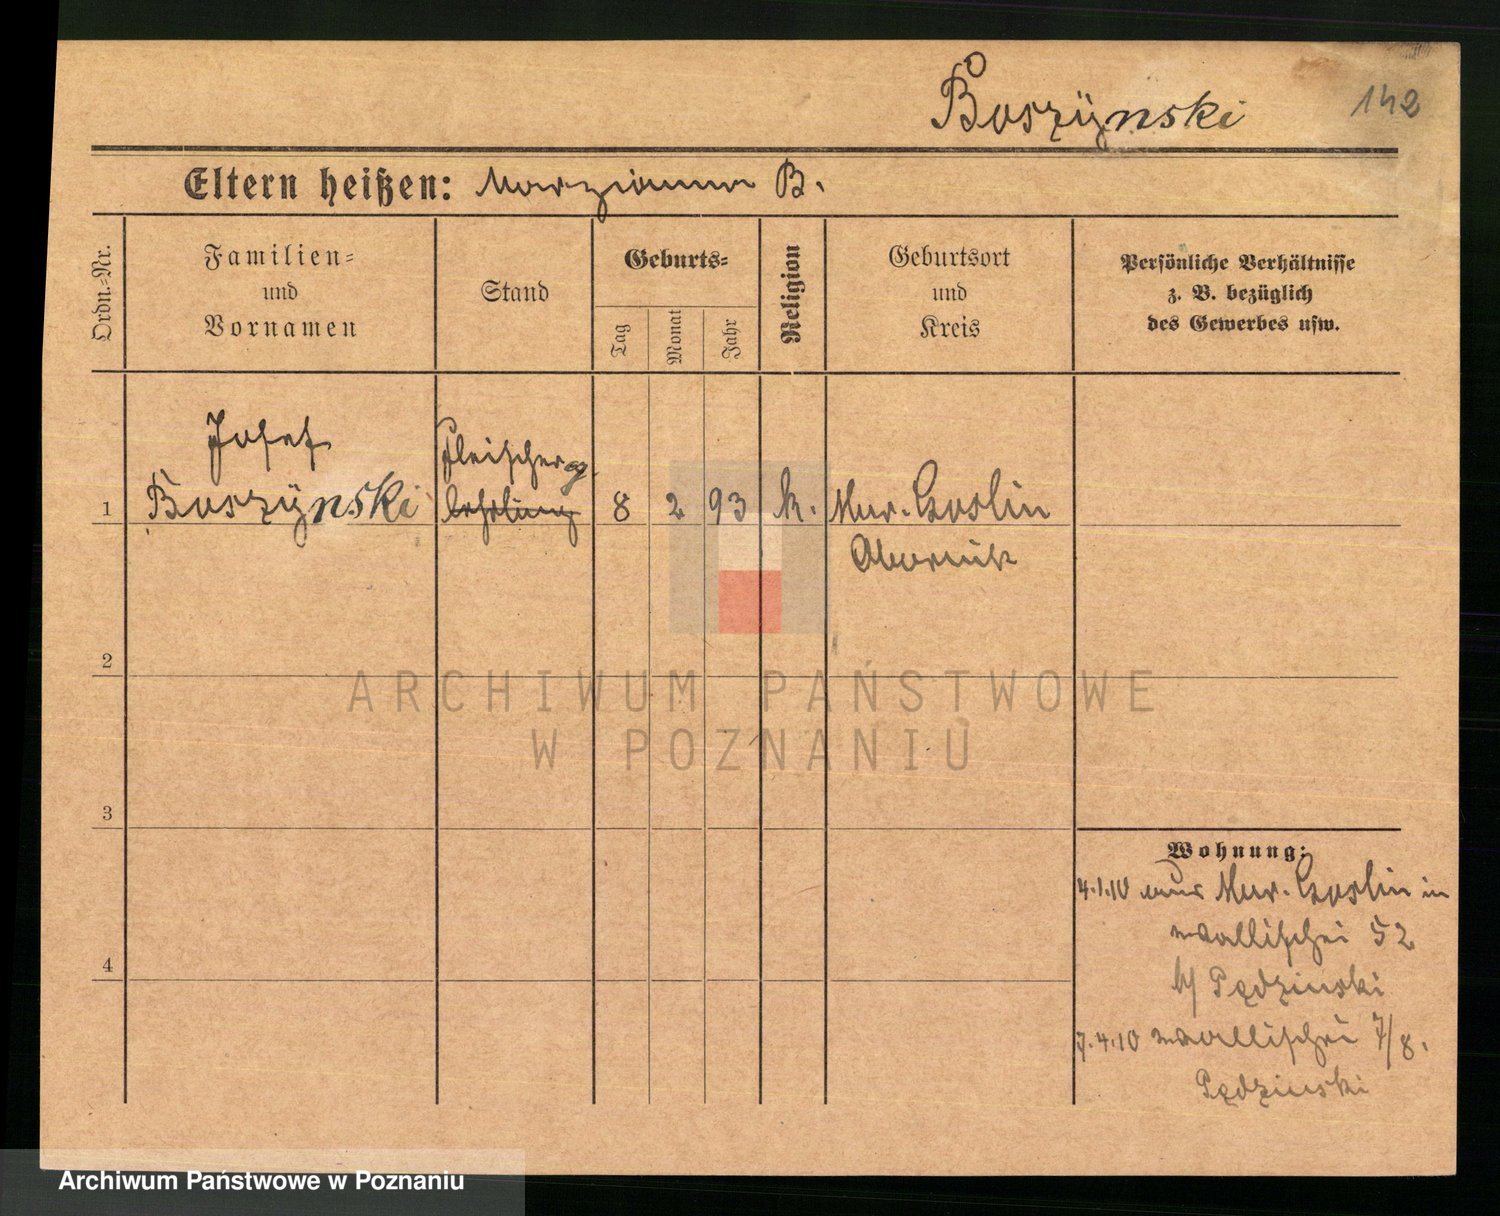 Boszÿnski 142
Eltern heißen: Marzianna B.
Ordn.-Nr.
Familien-
und
Vornamen
Stand
Geburts-
Tag
Monat
Jahr
Religion
Geburtsort
und
Kreis
Persönliche Verhältnisse
z. B. bezüglich
des Gewerbes usw.
Josef
Fleischer
1 Boszÿnski lehrling 8 2 93 k. Mur. Goslin
Obornik
2
ARCHIWUM PAŃSTWOWE
W POZNANIU
3
Wohnung:
4.1.10 aus Mur. Goslin in
Wallischei 52
b/ Pędzinski
4
7.4.10 Wallischei 7/8.
Pędzinski
Archiwum Państwowe w Poznaniu